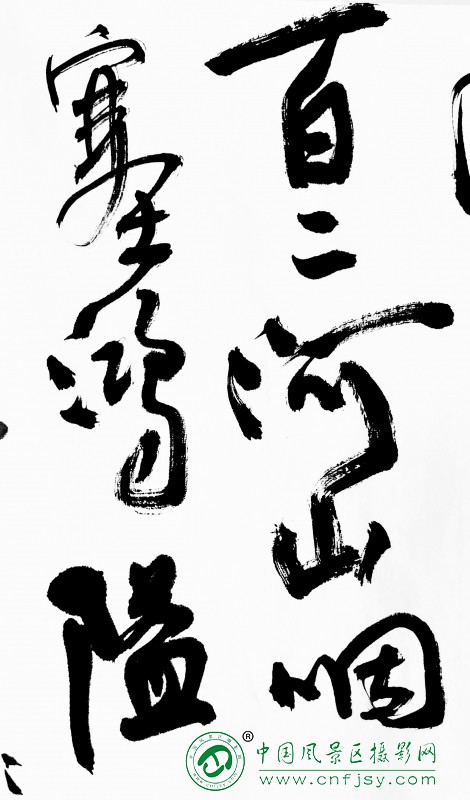 百二河山咽
塞鸿隘
®
中国风景区摄影网
www.cnfjsy.com